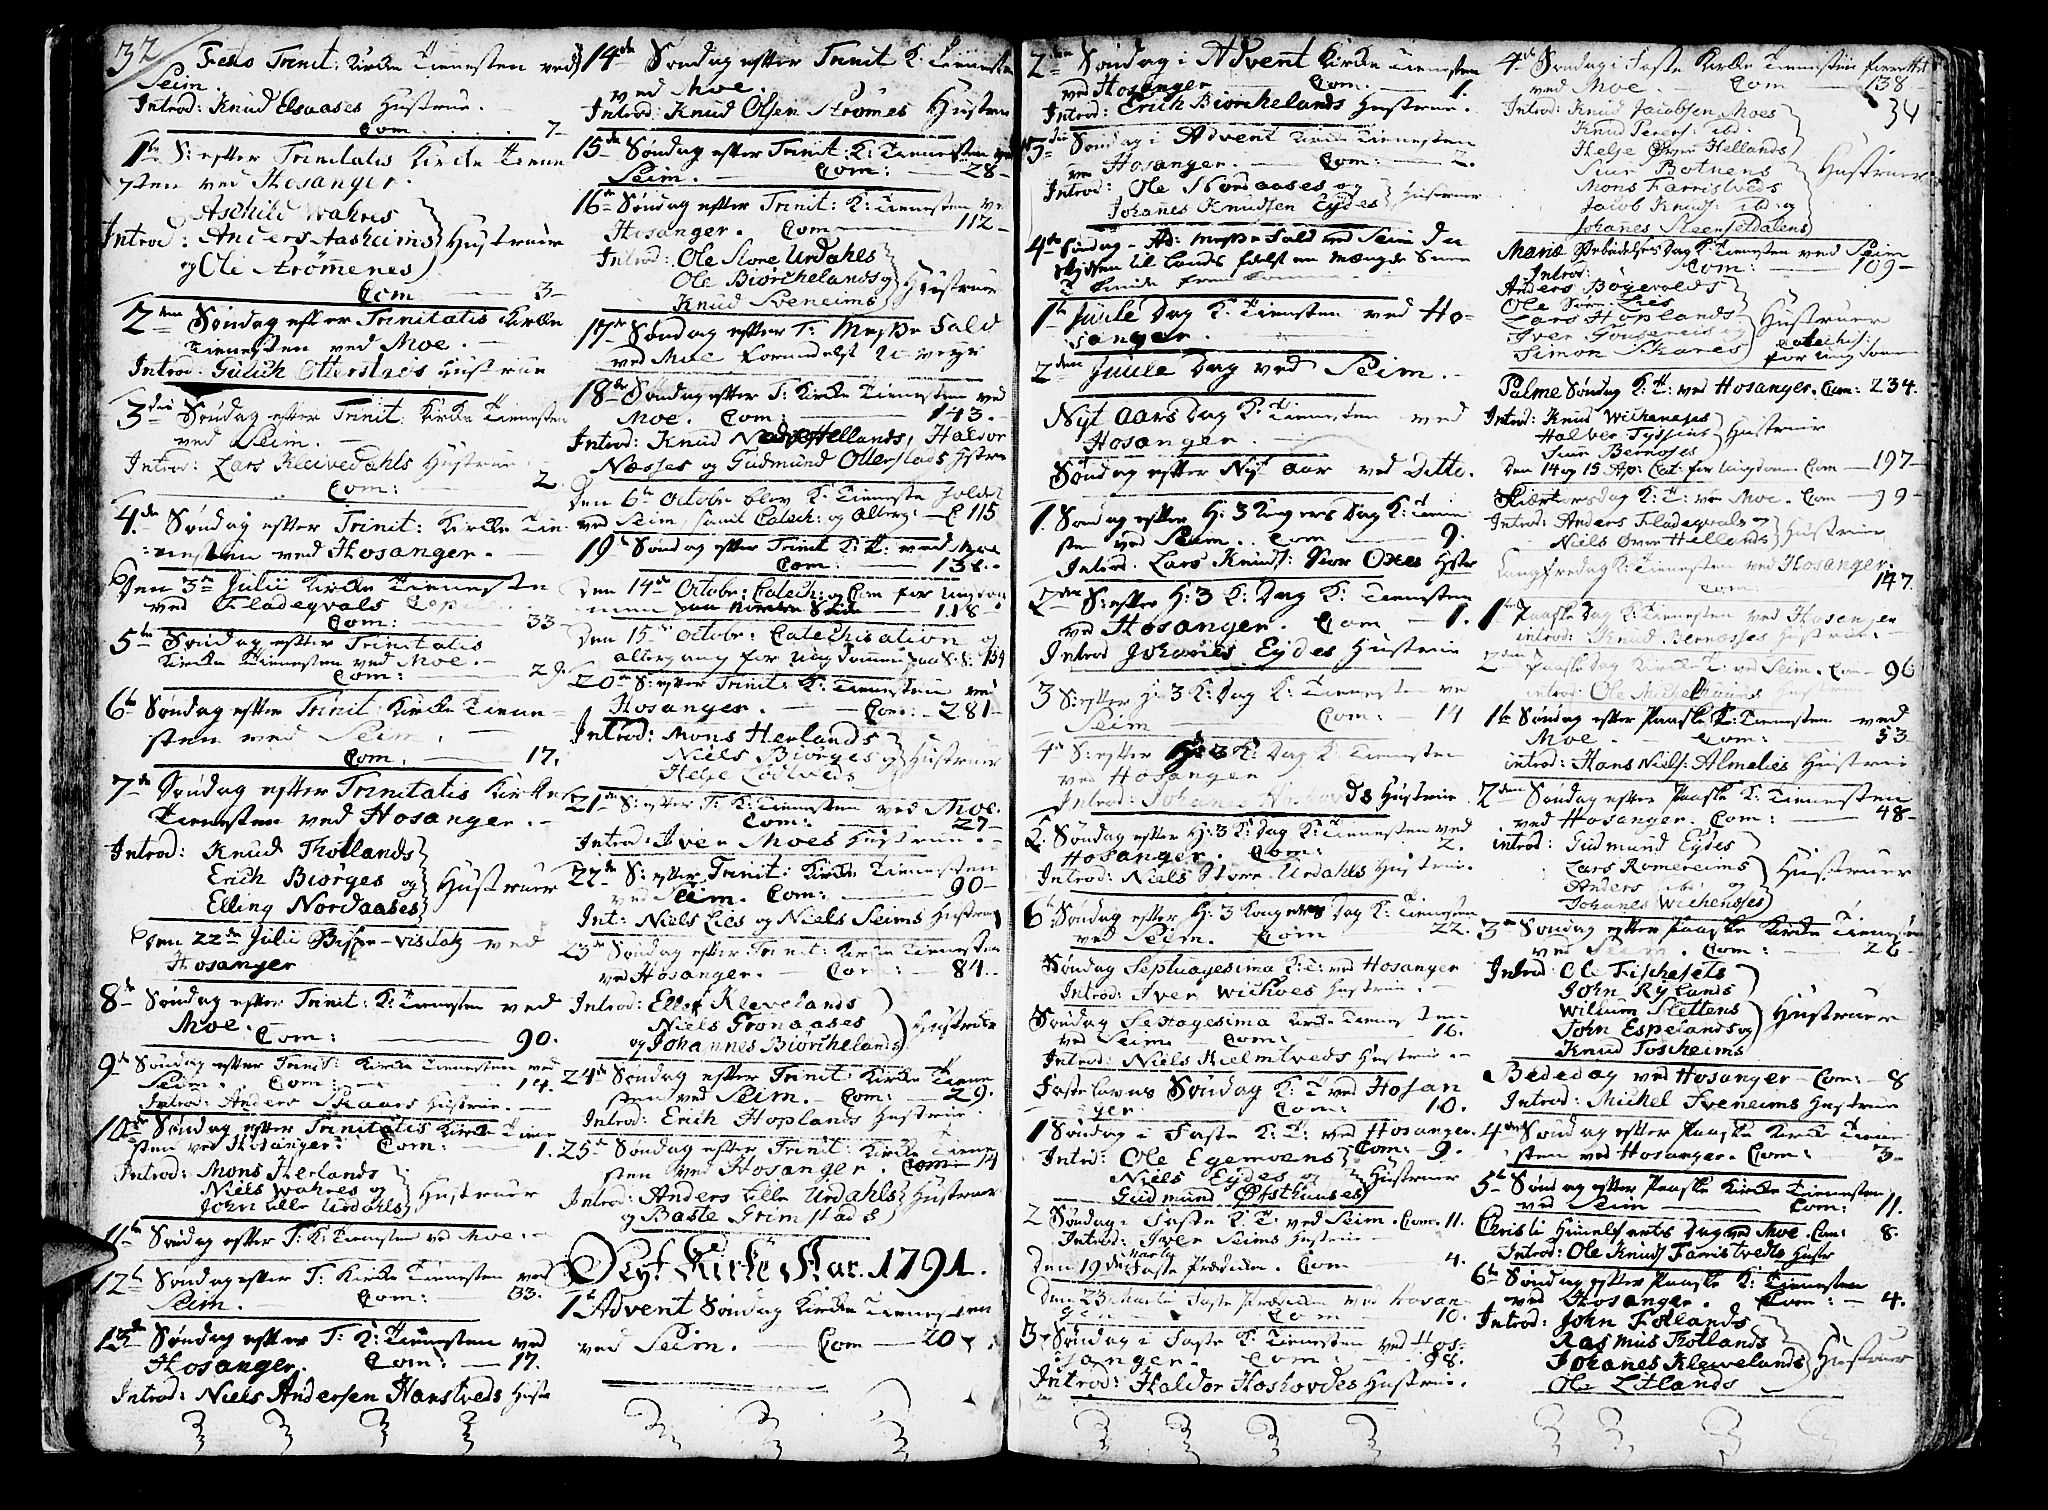 32
Festo Trinit: Kirke Tienesten ved
Seim.
Introd: Knud Elsaases Hustrue.
Com. . . . . 7-
1te S: efter Trinitatis Kirke Tiene
sten ved Hosanger.
Aschild Wahnes
Introd: Anders Aasheims Hustruer
og Ole Strömenes
Com 3-
2den Søndag efter Trinitatis Kirke
Tienesten ved Moe. -
Introd: Gulich Otterstads Hustrue
3die Søndag efter Trinit: Kirke Tienesten
ved Seim. -
Introd: Lars Kleivedahls Hustrue.
Com: 2.
4de Søndag efter Trinit: Kirke Tie-
nesten ved Hosanger. -
Den 3de Julii Kirke Tieneste
ved Fladeqvals
Com: 33-
5te Søndag efter Trinitatis
Kirke Tienesten ved Moe. -
Com: 29.
6te Søndag efter Trinit Kirke Tiene-
sten ved Seim.
Com. 17.
7de Søndag efter Trinitatis Kirke
Tienesten ved Hosanger. -
Introd: Knud Totlands
Erich Biörges og Hustruer
Elling Nordaases
Den 22de Julii Bispe-Visitatz ved
Hosanger
8de Søndag efter Trinit: K: Tienesten ved
Moe. Com: 90.
9de Søndag efter Trinit: Kirke Tienesten ved
Seim. Com: 14.
Introd: Anders Skaars Hustrue. -
10de Søndag efter Trinitatis Kirke Tiene
sten ved Hosanger: Com: 1.
Introd: Mons Herlands
Niels Wahnes og Hustruer
John Lille Urdahls
11te Søndag efter T: K: Tienesten ved Moe. -
12te Søndag efter T: Kirke Tienesten ved
Seim. - Com: 33.
13de Søndag efter T: K: Tienesten ved
Hosanger. Com: 17.
Introd: Niels Andersen Hanstveds Hustr
14de Søndag efter Trinit K: Tieneste
ved Moe.
Introd: Knud Olsen Strömes Hustru
15de Søndag efter Trinit: K: Tienesten ved
Seim. - Com: 28-
16de Søndag efter Trinit: K: Tienesten ve
Hosanger. Com 112-
Introd: Ole Store Urdahls
Ole Biörchelands og Hustruer
Knud Sveneims
17de Søndag efter T: Messe Fald
ved Moe formedelst U-veyr
18de Søndag efter T: Kirke Tienesten ved
Moe. Com: 143. -
Introd: Knud Nedre Hellands, Haldor
Næsses og Gudmund Otterstads Hstru
Den 6te Octobr blev K: Tieneste holdet
ved Seim samt Catech: og Alterg: - C 115
19de Søndag efter Trinit K: T: ved Moe
Com: 138. -
Den 14de Octobr: Catech: og Com for Ungdom
men 118
Den 15de Octobr: Catechisation og
altergang for Ungdommen 134
20de S: efter Trinit: K: Tienesten ved
Hosanger. Com: - 281-
Introd: Mons Herlands
Niels Biörges og Hustruer
Helje Lödtveds
21de S: efter T: K: Tienesten ved Moe.
Com: 27-
Introd: Iver Moes Hustrue. -
22de S: efter Trinit: Kirke Tienesten
ved Seim. Com: 90-
Int: Niels Lies og Niels Seims Hustruer
23de Søndag efter Trinit: Kirke Tienesten
ved Hosanger. - Com: 84. -
Introd: Ellef Klevelands
Niels Gronaases Hustruer
og Johannes Biörchelands
24de Søndag efter Trinit: Kirke Tiene
sten ved Seim. - Com: 29.
Introd: Erich Hoplands Hustrue.
25de Søndag efter Trinit: Kirke Tiene
sten ved Hosanger. Com 14
Introd: Anders Lille Urdahls Hustruer
og Baste Grimstads
Nyt Kirke Aar. 1791.
1te Advent Søndag Kirke Tienesten
ved Seim. - Com - 20
2den Søndag i Advent Kirke Tienesten
ved Hosanger Com. 1.
Introd: Erich Biörchelands Hustrue.
3die Søndag i Advent Kirke Tienesten
ved Hosanger. Com: 2.
Introd: Ole Nordaases og Hustruer
Johanes Knudsen Eydes
4de Søndag - Ad: Messe Fald ved Seim
1te Juule Dag K: Tienesten ved Ho-
sanger.
2den Juule Dag ved Seim. -
Nyt Aars Dag K: Tienesten ved
Hosanger. -
Søndag efter Nyt Aar ved Ditto.
1. Søndag efter H: 3 Kongers Dag K: Tiene
sten ved Seim. Com 9.
Introd: Lars Knuds: Hstr
2den S: efter H: 3 K: Dag K: Tienesten
ved Hosanger. Com - 1.
Introd Johanes Eydes Hustrue
3 S: efter H: 3 K: Dag K: Tienesten ve
Seim Com: - 14
4de S: efter H: 3 K: Dag K: Tienesten
ved Hosanger
Introd: Johanes Hoshovds Hustrue.
5. Søndag efter H: 3 K: Dag K: Tienesten ved
Hosanger. Com: 2.
Introd: Niels Store Urdahls Hustrue.
6te Søndag efter H: 3 Kongers Dag K: Tienesten
ved Seim. Com 22.
Søndag Septuagesima K: T: ved Hosanger
Introd: Iver Wichnes Hustrue. -
Søndag Sextagesima Kirke Tienesten
ved Seim Com: 16.
Introd: Niels Hielmtveds Hustrue. -
Fastelavns Søndag K: T ved Hosan
ger. Com: 10.
1 Søndag i Faste K: T: ved Hosanger.
Introd: Ole Egemoens Com: - 9.
Niels Eydes og Hustruer
Gudmund Öfsthuuses
2 Søndag i Faste K: T: ved Seim. Com. 11.
Introd: Iver Seims Hustrue
Den 19de Martz Faste Prædiken. Com 4.
Den 23 Martii Faste Prædiken ved Hosan-
ger Com 10.
3 Søndag i Faste K: Tienesten ved Ho-
sanger. Com: 98.
Introd: Haldor Hoshovdes Hustrue.
4de Søndag i Faste Kirke Tienesten forrettet
ved Moe. Com 138-
34
Introd: Knud Jacobsen Moes
Knud Peders: ibd:
Helje Øvre Hellands
Siur Botnens Hustruer
Mons Farristveds
Jacob Knuds: ibd og
Johanes Steensetdalens
Mariæ Bebudelses Dag K: Tienesten ved Seim
Introd: Com: 109-
Anders Bogevolds
Ole Sörn: Lies
Lars Hoplands Hustruer
Iver Tousereis og Catechis:
Simon Skares for Ungdom
Palme Søndag K: T: ved Hosanger. Com: 234.
Introd: Knud Wicheneses
Halver Tyssens Hustruer
Siur Bernoses
Den 14 og 15 Ap: Cat: for Ungdom. Com - 197-
Skiærtorsdag K: T: ved Moe. Com - 99-
Introd: Anders Fladeqvals og Hustruer
Niels Øvre Hellands
Langfredag K: Tienesten ved Hosanger.
Com: 147.
1te Paaske Dag K: Tienesten ved Hosanger
introd: Knud Bernosses Hustrue. -
2den Paaske Dag Kirke T: ved Seim. Com - 96
introd: Ole Michelsens Hustrue
1te Søndag efter Paaske K: Tienesten ved
Moe. - Com: 53
introd: Hans Niels: Almelies Hustrue
2den Søndag efter Paaske K: Tienesten
ved Hosanger. Com: 48-
introd: Gudmund Eydes
Lars Romereims Hustruer
Anders ibd: og
Johanes Wichensses
3de Søndag efter Paaske Kirke Tienesten
ved Seim. Com: 26-
Introd: Ole Trischesets
John Rylands
Wilium Slettens Hustruer
John Espelands og
Knud Toscheims
Bededag ved Hosanger - Com: - 8
Introd: Michel Sveneims Hustrue
4de Søndag efter Paaske Kirke Tiene
sten ved Hosanger. Com: 3-
5te Søndag efter Paaske Kirke Tienesten
ved Seim Com: 11.
Christi Himelfarts Dag ved Moe. Com: 8.
Introd: Ole Knuds Farristveds Hustr
6te Søndag efter Paaske K: Tienesten
ved Hosanger. Com: - 4.
Introd: John Fotlands
Rasmus Totlands
Johanes Klevelands Hustruer
Ole Litlands